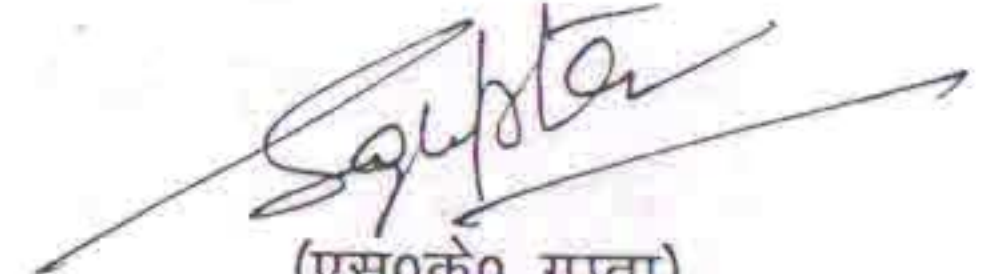 Sgupta
(एस०के० गुप्ता)